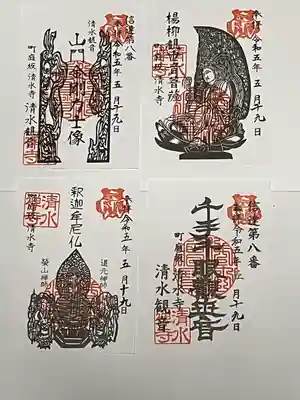 當達第八番
奉拝 令和五年 五月十九日
清水観音
山門金剛力士像
町庭坂 清水寺
清水観音
奉拝 令和五年 五月十九日
楊柳観世音菩薩
町庭坂 清水寺
清水観音
奉拝 令和五年 五月十九日
釈迦牟尼仏
道元禅師
瑩山禅師
清水寺
第八番
奉拝 令和五年 五月十九日
千手千眼観世音
町庭坂 清水寺
清水観音